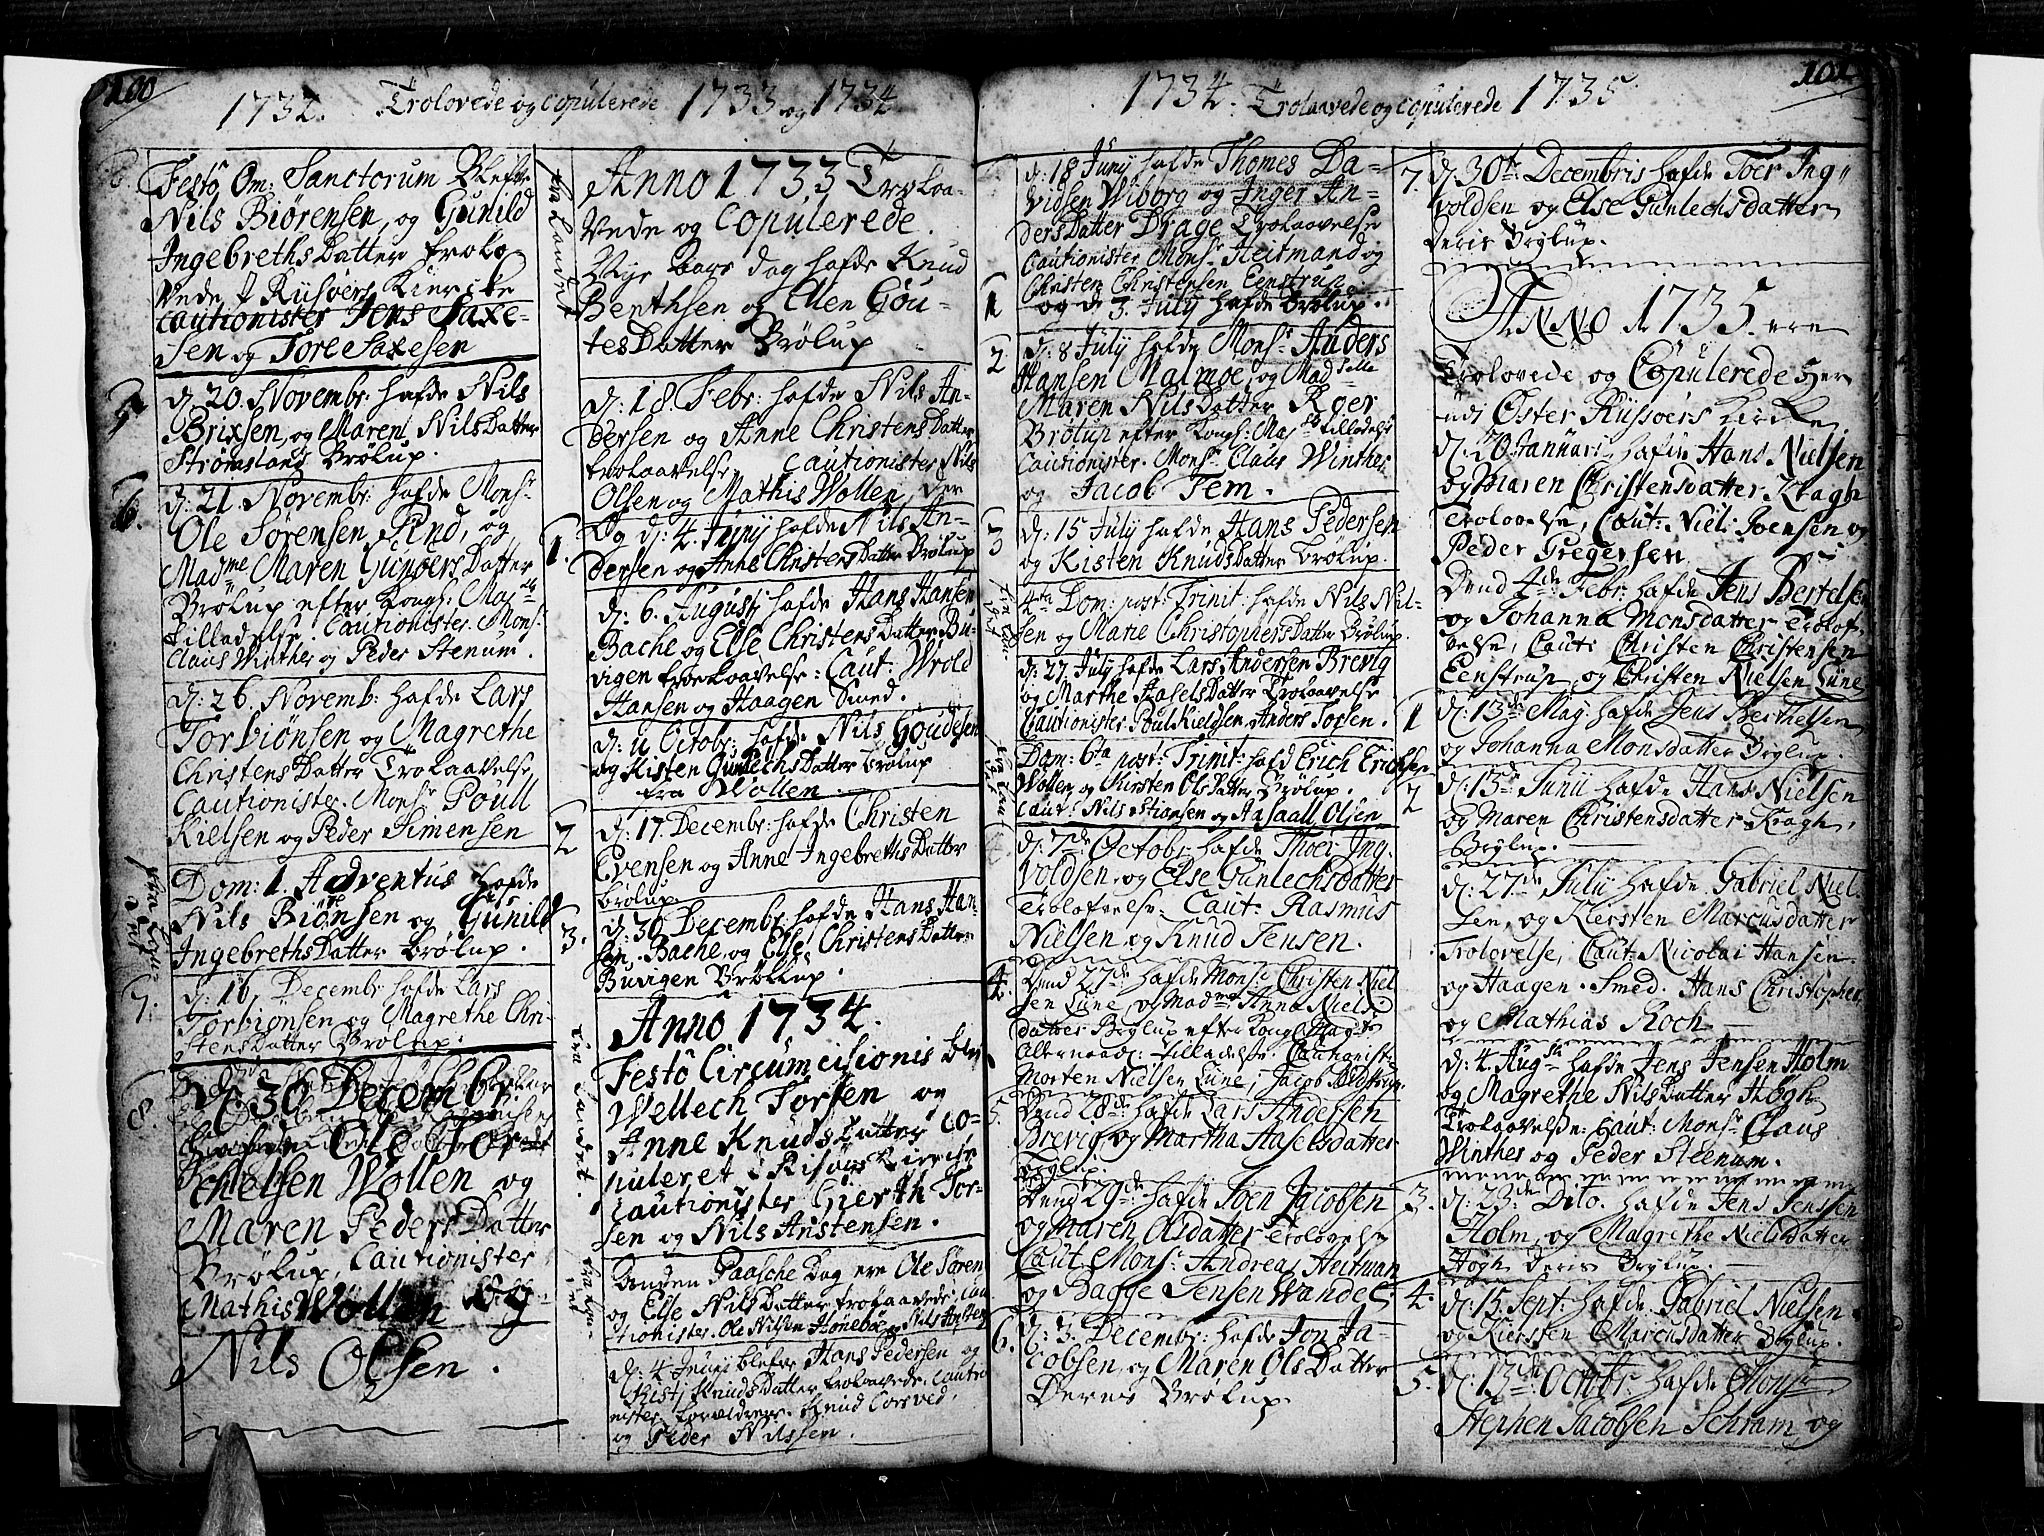 100
1732. Trolovede og copulerede 1733 og 1734
Festo Om: Sanctorum Blefve
Nils Biørensen, og Gunild
Ingebreths Datter trolo-
vede I Riisøers Kiercke
Cautionister Jens Saxe-
sen og Tore Saxesen
5
d: 20. Novembr: hafde Nils
Brixsen, og Maren Nils Datter
Strømsland Brølup.
6.
d: 21. Novembr: hafde Monsr
Ole Sørensen Pind, og
Madme Maren Gunders Datter
Brølup efter Kongl: May:
Tilladelse. Cautionister. Mons:
Claus Winther og Peder Stenum.
d: 26. Novemb: hafde Lars
Torbiønsen og Magrethe
Christens Datter Trolaavelse
Cautionister. Monsr Poull
Kielsen og Peder Simensen
Dom: 1. Adventus hafde
Nils Biønsen og Gunild
Ingebreths Datter Brølup.
7.
d: 16. Decembr: hafde Lars
Torbiønsen og Magrethe Chri-
stens Datter Brølup.
8.
d: 30 Decembr:
hafde Ole Tor-
chelsen Wollen og
Maren Peders Datter
Brølup, Cautionister
Mathis Wollen og
Nils Olsen.
fra Landet
Anno 1733 Troloa-
vede og Copulerede.
Nye Aars dag hafde Knud
Benthsen og Ellen Gou-
tes Datter Brølup
d: 18. Febr: hafde Nils An-
dersen og Anne Christens Datter
trolaavelse, Cautionister Nils
Olsen og Mathis Wollen
1.
Og d: 4. Junij hafde Nils An-
dersen og Anne Christens Datter Brølup
d: 6. Augusti hafde Hans Hansen
Bache og Else Christens Datter Bu-
vigen troloavelse: Caut: Wrold
Hansen og Haagen Smed.
d: 11 Octobr: hafde Nils Goudesen
og Kisten Gunlechs Datter Brølup
fra Wollen.
2
d: 17. Decembr: hafde Christen
Evensen og Anne Ingebreths Datter
Brølup.
3.
d: 30 Decembr: hafde Hans Han-
sen Bache, og Else Christens Datter
Buvigen Brøllup.
Anno 1734.
fra Landet.
Festo Circumcisionis blev
Wellech Torsen og
Anne Knuds Datter co-
puleret i Risøers Kiercke
Cautionister Gierth Tor-
sen og Nils Anstensen.
Anden Paasche Dag ere Ole Søren
og Else Nils Datter trolaavede, Cau
tionister. Ole Nilsen Honeboe, Nils Ansten
d: 4 Junij blefve Hans Pedersen og
Kisti Knuds Datter trolaavede, Cautio
nister. Knud Corsved
og Peder Nilssen.
101
1734. Trolaavede og copulerede 1735
d: 18 Junij hafde Thomes Da-
vidsen Wiborg og Inger An-
ders Datter Drage Trolaavelse
Cautionister Monsr Heitmand og
Christen Christensen Eenstrup
1
og d: 3. July hafde Brølup.
2
d: 8 July hafde Monsr Anders
Hansen Malmoe, og Madselle
Maren Nils Datter Roer
Brølup efter Kongl: May: Tilladelse
Cautionister. Monsr Claus Winther
og Jacob Fem.
3
d: 15 July hafde Hans Pedersen
og Kisten Knuds Datter Brølup.
4ta Dom: post: Trinit: hafde Nils Nil-
sen og Marie Christophers Datter Brølup
d: 27. July hafde Lars Andersen Brevig
og Marthe Hasels Datter Trolaavelse
Cautionister. Poul Kieldsen, Anders Torsen.
Dom: 6ta post: Trinit: hafd Erich Erichsen
Wollen og Kirsten Ols Datter Brølup.
Caut: Nils Stiansen og Aasaall Olsen
d: 7de Octobr: hafde Thoer Ing-
voldsen, og Else Gunlechsdatter
Trolofvelse. Caut: Rasmus
Nielsen og Knud Jensen.
4.
Dend 27de hafde Mons: Christen Niel
sen Lune, og Madme Anna Niels-
datter Brylup efter Kongl: Mayts
Allernaad: tilladelse. Cautionister
Morten Nielsen Lune, Jacob
5.
Dend 28de hafde Lars Andersen
Brevig og Martha Haselsdatter
Brylup.
Dend 29de hafde Joen Jacobsen
og Maren Olsdatter Trolovelse
Caut. Mons: Andreas Heitman
og Bagge Jensen Wandel.
6.
d: 3. Decembr: hafde Jon Ja-
cobsen, og Maren Ols Datter
Deres Brølup.
7.
d: 30te Decembris hafde Toer Ing-
voldsen og Else Gunlechsdatter
Deris Brylup.
Anno 1735 ere
Trolovede og Copulerede Her
udi Øster Riissøers Kircke
d: 20 Januari hafde Hans Nielsen
og Maren Christensdatter Kragh
Trolovelse, Caut: Niel: Joensen og
Peder Gregersen
Dend 4de Febr: hafde Jens Bertelsen
og Johanna Monsdatter Trolof-
velse, Caut: Christen Christensen
Eenstrup, og Christen Nielsen Lune
1
d: 13de Maÿ hafde Jens Berthelsen
og Johanna Monsdatter Brylup.
2
d: 15de Junii hafde Hans Nielsen
og Maren Christensdatter Kragh
Brylup.
d: 27de Julij hafde Gabriel Niel-
sen, og Kiersten Marcusdatter
Trolovelse, Caut: Nicolai Hansen
og Haagen Smed. Hans Christopher
og Mathias Roch
d: 4. Augsti hafde Jens Jensen Holm
og Magrethe Nils Datter Høgh
Trolaavelse: Caut: Monsr Claus
Winther og Peder Steenum.
3.
d: 23de Dito. hafde Jens Jenssen
Holm, og Magrethe Nielsdatter
Høgh Deris Brylup.
4.
d: 15. Sept: hafde Gabriel Nielsen
og Kiersten Marcusdatter Brylup.
5.
d: 13de Octobr: hafde Monsr
Stephen Jacobsen Schram, og